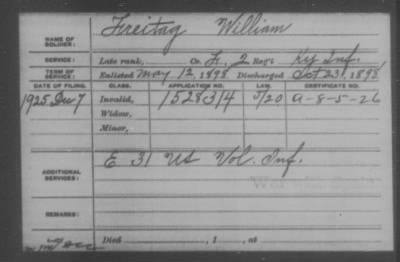 NAME OF SOLDIER: Freitag William
SERVICE: Late rank, Co. F, 2 Reg't Ky Inf.
TERM OF SERVICE: Enlisted May 12, 1898 Discharged Oct 31, 1898
DATE OF FILING. CLASS. APPLICATION NO. LAW. CERTIFICATE NO.
1925 Dec 7 Invalid, 1528314 5/20 A-8-5-26
Widow,
Minor,
ADDITIONAL SERVICES: E 31 US Vol. Inf.
REMARKS:
Died , 1 , at